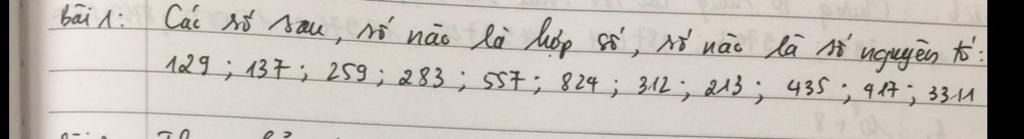 bài 1: Các số sau, số nào là hợp số, số nào là số nguyên tố:
129; 137; 259; 283; 557; 824; 312; 213; 435; 417; 3311